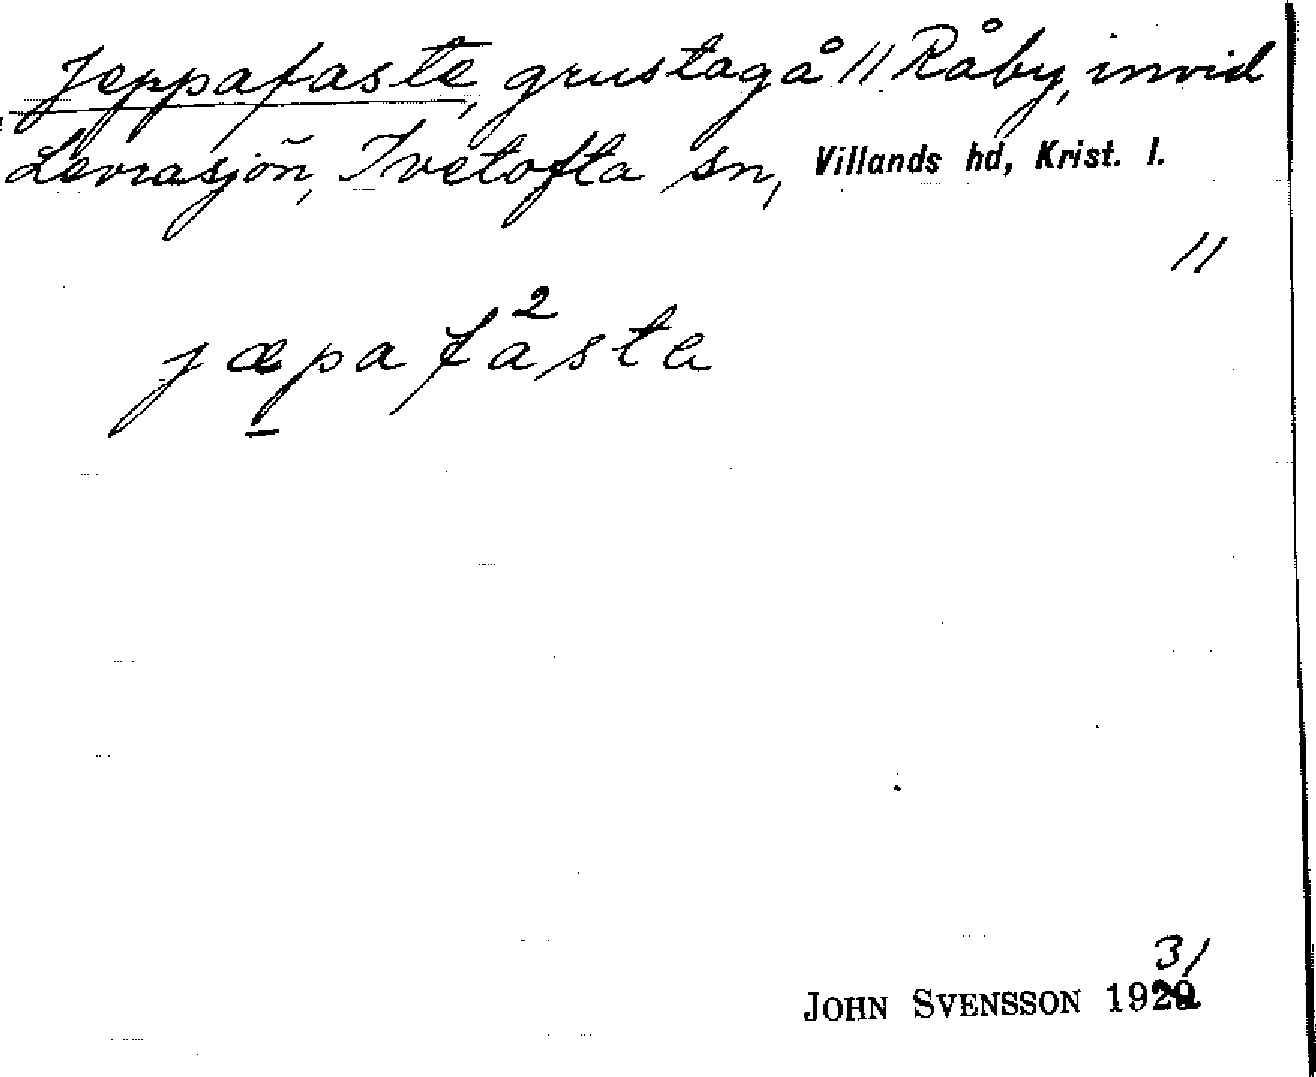 Jeppafaste, grustag å 11 Råby, invid
Levrasjön, Ivetofta sn, Villands hd, Krist. l.
11
jæpafa²sta
31
JOHN SVENSSON 1929